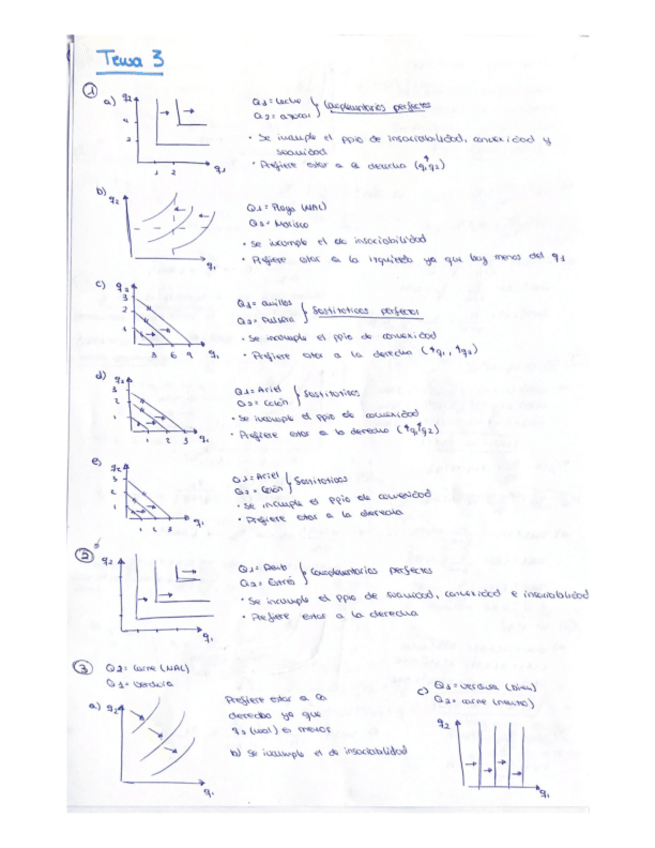 Tema 3
1
a) q2
Q1 = Leche
Q2 = azúcar } Complementarios perfectos
4
2
1 2 q1
• Se incumple el ppio de insaciabilidad, convexidad y
suavidad
• Prefiere estar a la derecha (q1 q2)
b) q2
Q1 = Playa (MAL)
Q2 = Marisco
• Se incumple el de insaciabilidad
• Prefiere estar a la izquierda ya que hay menos del q1
q1
c) q2
3
2
1
3 6 9 q1
Q1 = anillos
Q2 = Pulsera } Sustitutivos perfectos
• Se incumple el ppio de convexidad
• Prefiere estar a la derecha (↑q1, ↑q2)
d) q2
3
2
1
1 2 3 q1
Q1 = Ariel
Q2 = Colón } Sustitutivos
• Se incumple el ppio de convexidad
• Prefiere estar a la derecha (↑q1 ↑q2)
e) q2
3
2
1 2 3 q1
Q1 = Ariel
Q2 = Colón } Sustitutivos
• Se incumple el ppio de convexidad
• Prefiere estar a la derecha
2
q2
q1
Complementarios perfectos
• Se incumple el ppio de suavidad, convexidad e insaciabilidad
• Prefiere estar a la derecha
3 Q2 = carne (MAL)
Q1 = verdura
a) q2
q1
Prefiere estar a la
derecha ya que
q2 (mal) es menor
b) Se incumple el de insaciabilidad
c) Q1 = verdura (bien)
Q2 = carne (neutro)
q2
q1